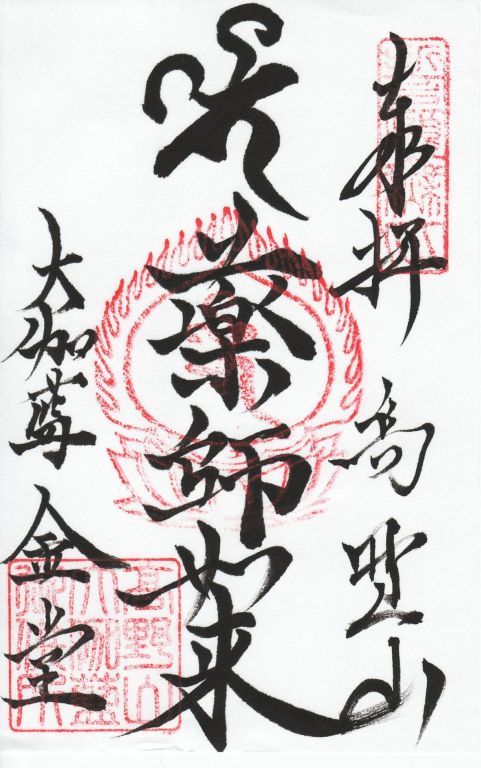 奉拝 高野山
薬師如来
大伽藍 金堂
高野山
大伽藍